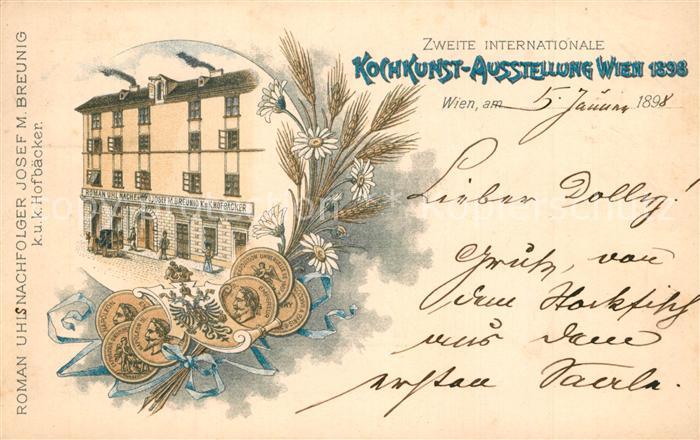 ZWEITE INTERNATIONALE
KOCHKUNST-AUSSTELLUNG WIEN 1898
Wien, am 5. Jänner 1898
Lieber Dolly!
Gruß, von
dem Stockfisch
aus dem
ersten Saale.
ROMAN UHL'S NACHFOLGER JOSEF M. BREUNIG
k.u.k. Hofbäcker.
ROMAN UHL NACHFOLGER JOSEF M. BREUNIG K.u.K. HOFBÄCKER